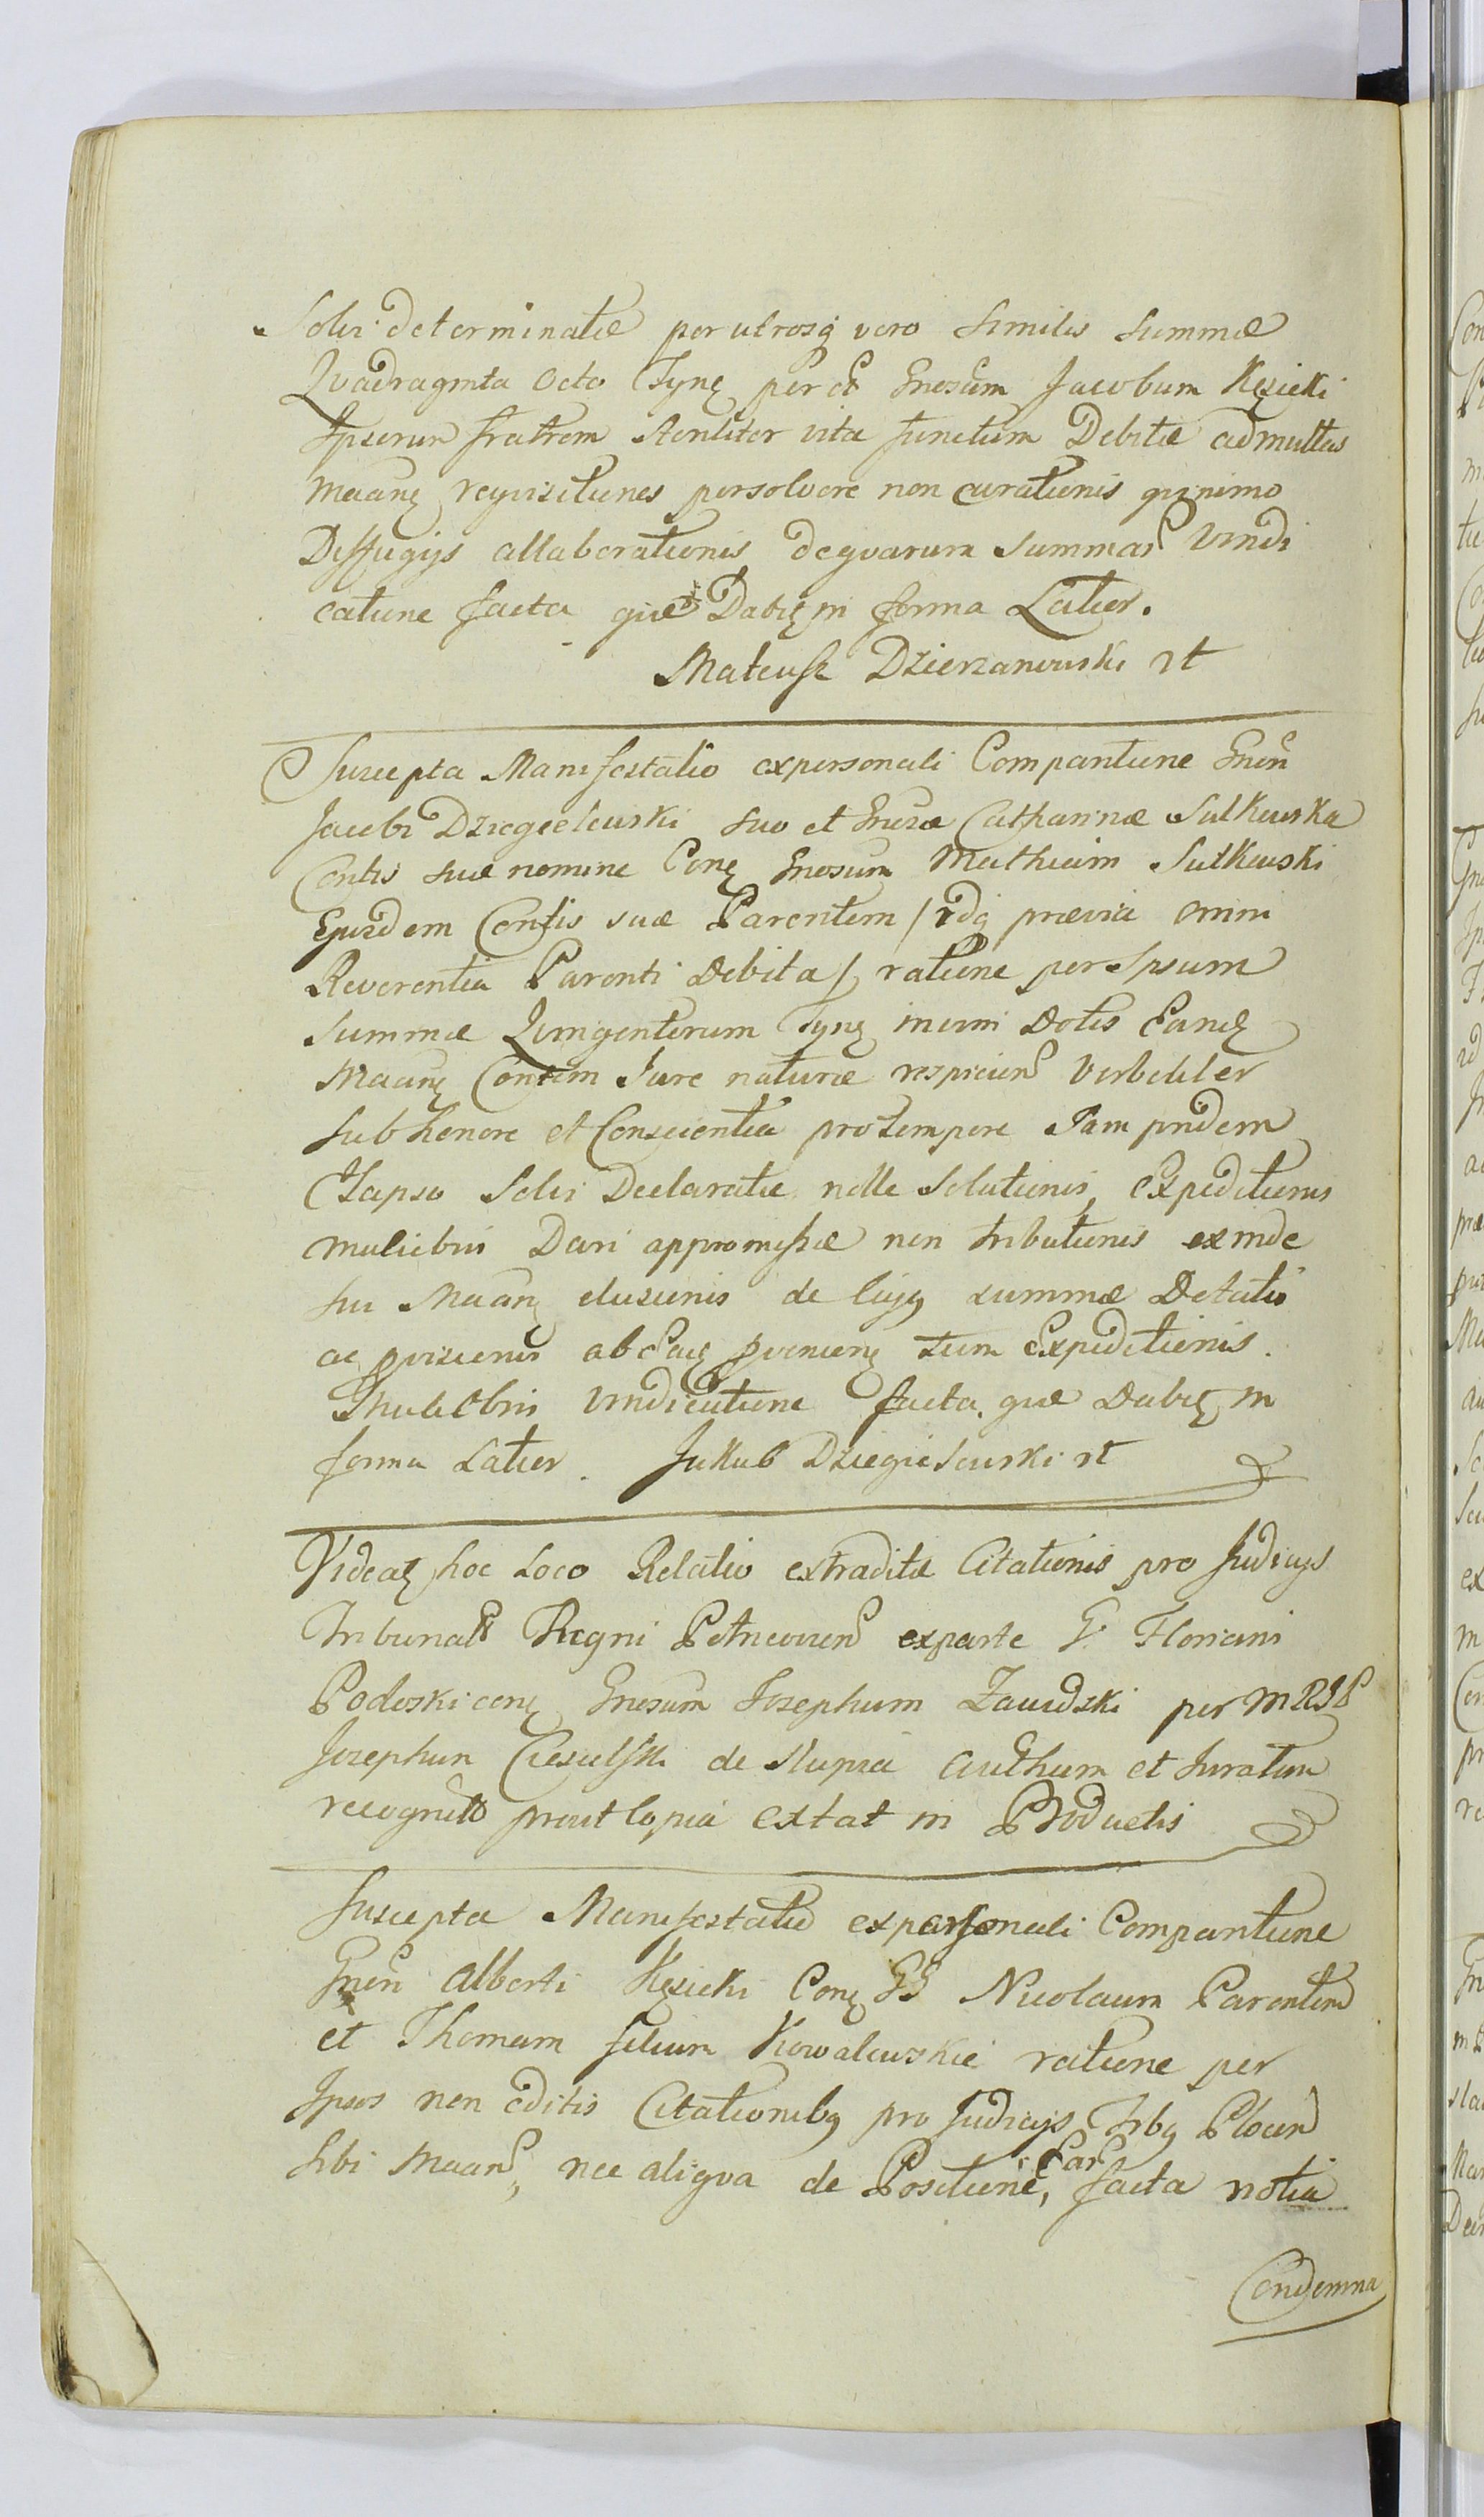 Solvi determinatæ per utrosq vero similis Summæ
Quadraginta Octo Tynę per et Gnosum Jacobum Kęsicki
Ipsorum fratrem steriliter vita functum Debitæ ad multas
Maanę requisitiones persolvere non curationis quinimo
Diffugijs allaborationis dequarum Summar Vindi
catione facta quæ Dabię in forma Latior.
Mateusz Dzierzanowski rt
Suscepta Manifestatio expersonali Compantione Gnen
Jacobi Dziegielewski suo et Gnosæ Catharinæ Sulkowska
Contis suæ nomine Conę Gnosum Mathiam Sulkowski
Ejusdem Contis suæ Parentem / idq prævia omni
Reverentia Parenti Debita / ratione per Ipsum
Summæ Quingentorum Tynę in vim Dotis Eandę
Maanę Contem Jure naturæ respicien Verbaliter
Sub honore et Conscientia pro tempore Jam pridem
Elapso Solvi Declaratæ nolle Solutionis, Expeditionis
muliebris Dari appromissæ non tributionis exinde
sui Maanę elusionis de Cujg summæ Dotalis
ac pvisionis ab Eaę pvenienę tum Expeditionis
Muliebris Vindicatione facta quæ Dabię in
forma Latior. Jakub Dziegielewski rt
Videaę hoc Loco Relatio extraditæ Citationis pro Judicijs
Tribunal Regni Petricovien exparte G. Floriani
Podoski conę Gnosum Josephum Zawidzki per MRJP
Josephum Ciesielski de Slupia authum et Juratum
recognitto prout Copia extat in Productis
Suscepta Manifestatio expersonali Compantione
Gnen Alberti Kęsicki Conę GG Nicolaum Parentem
et Thomam filium Kowalewskie ratione per
Ipsos non editis Citationibg pro Judicijs Trbg Plocen
sibi Maan, nec aliqua de Positione, Ear facta notia
Condemna